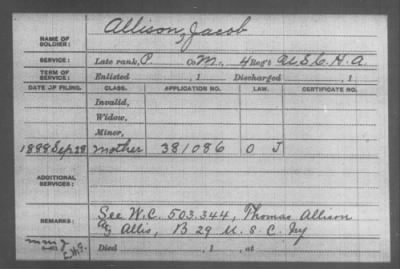 NAME OF SOLDIER: Allison, Jacob
SERVICE: Late rank, P. Co. M., 4 Reg't U. S. C. H. A.
TERM OF SERVICE: Enlisted , 1 Discharged , 1
DATE OF FILING. CLASS. APPLICATION NO. LAW. CERTIFICATE NO.
Invalid,
Widow,
Minor,
1888 Sep 28 Mother 381086 O J
ADDITIONAL SERVICES:
REMARKS: See W.C. 503.344, Thomas Allison
Allis, B 29 U. S. C. Iny
Died , 1 , at